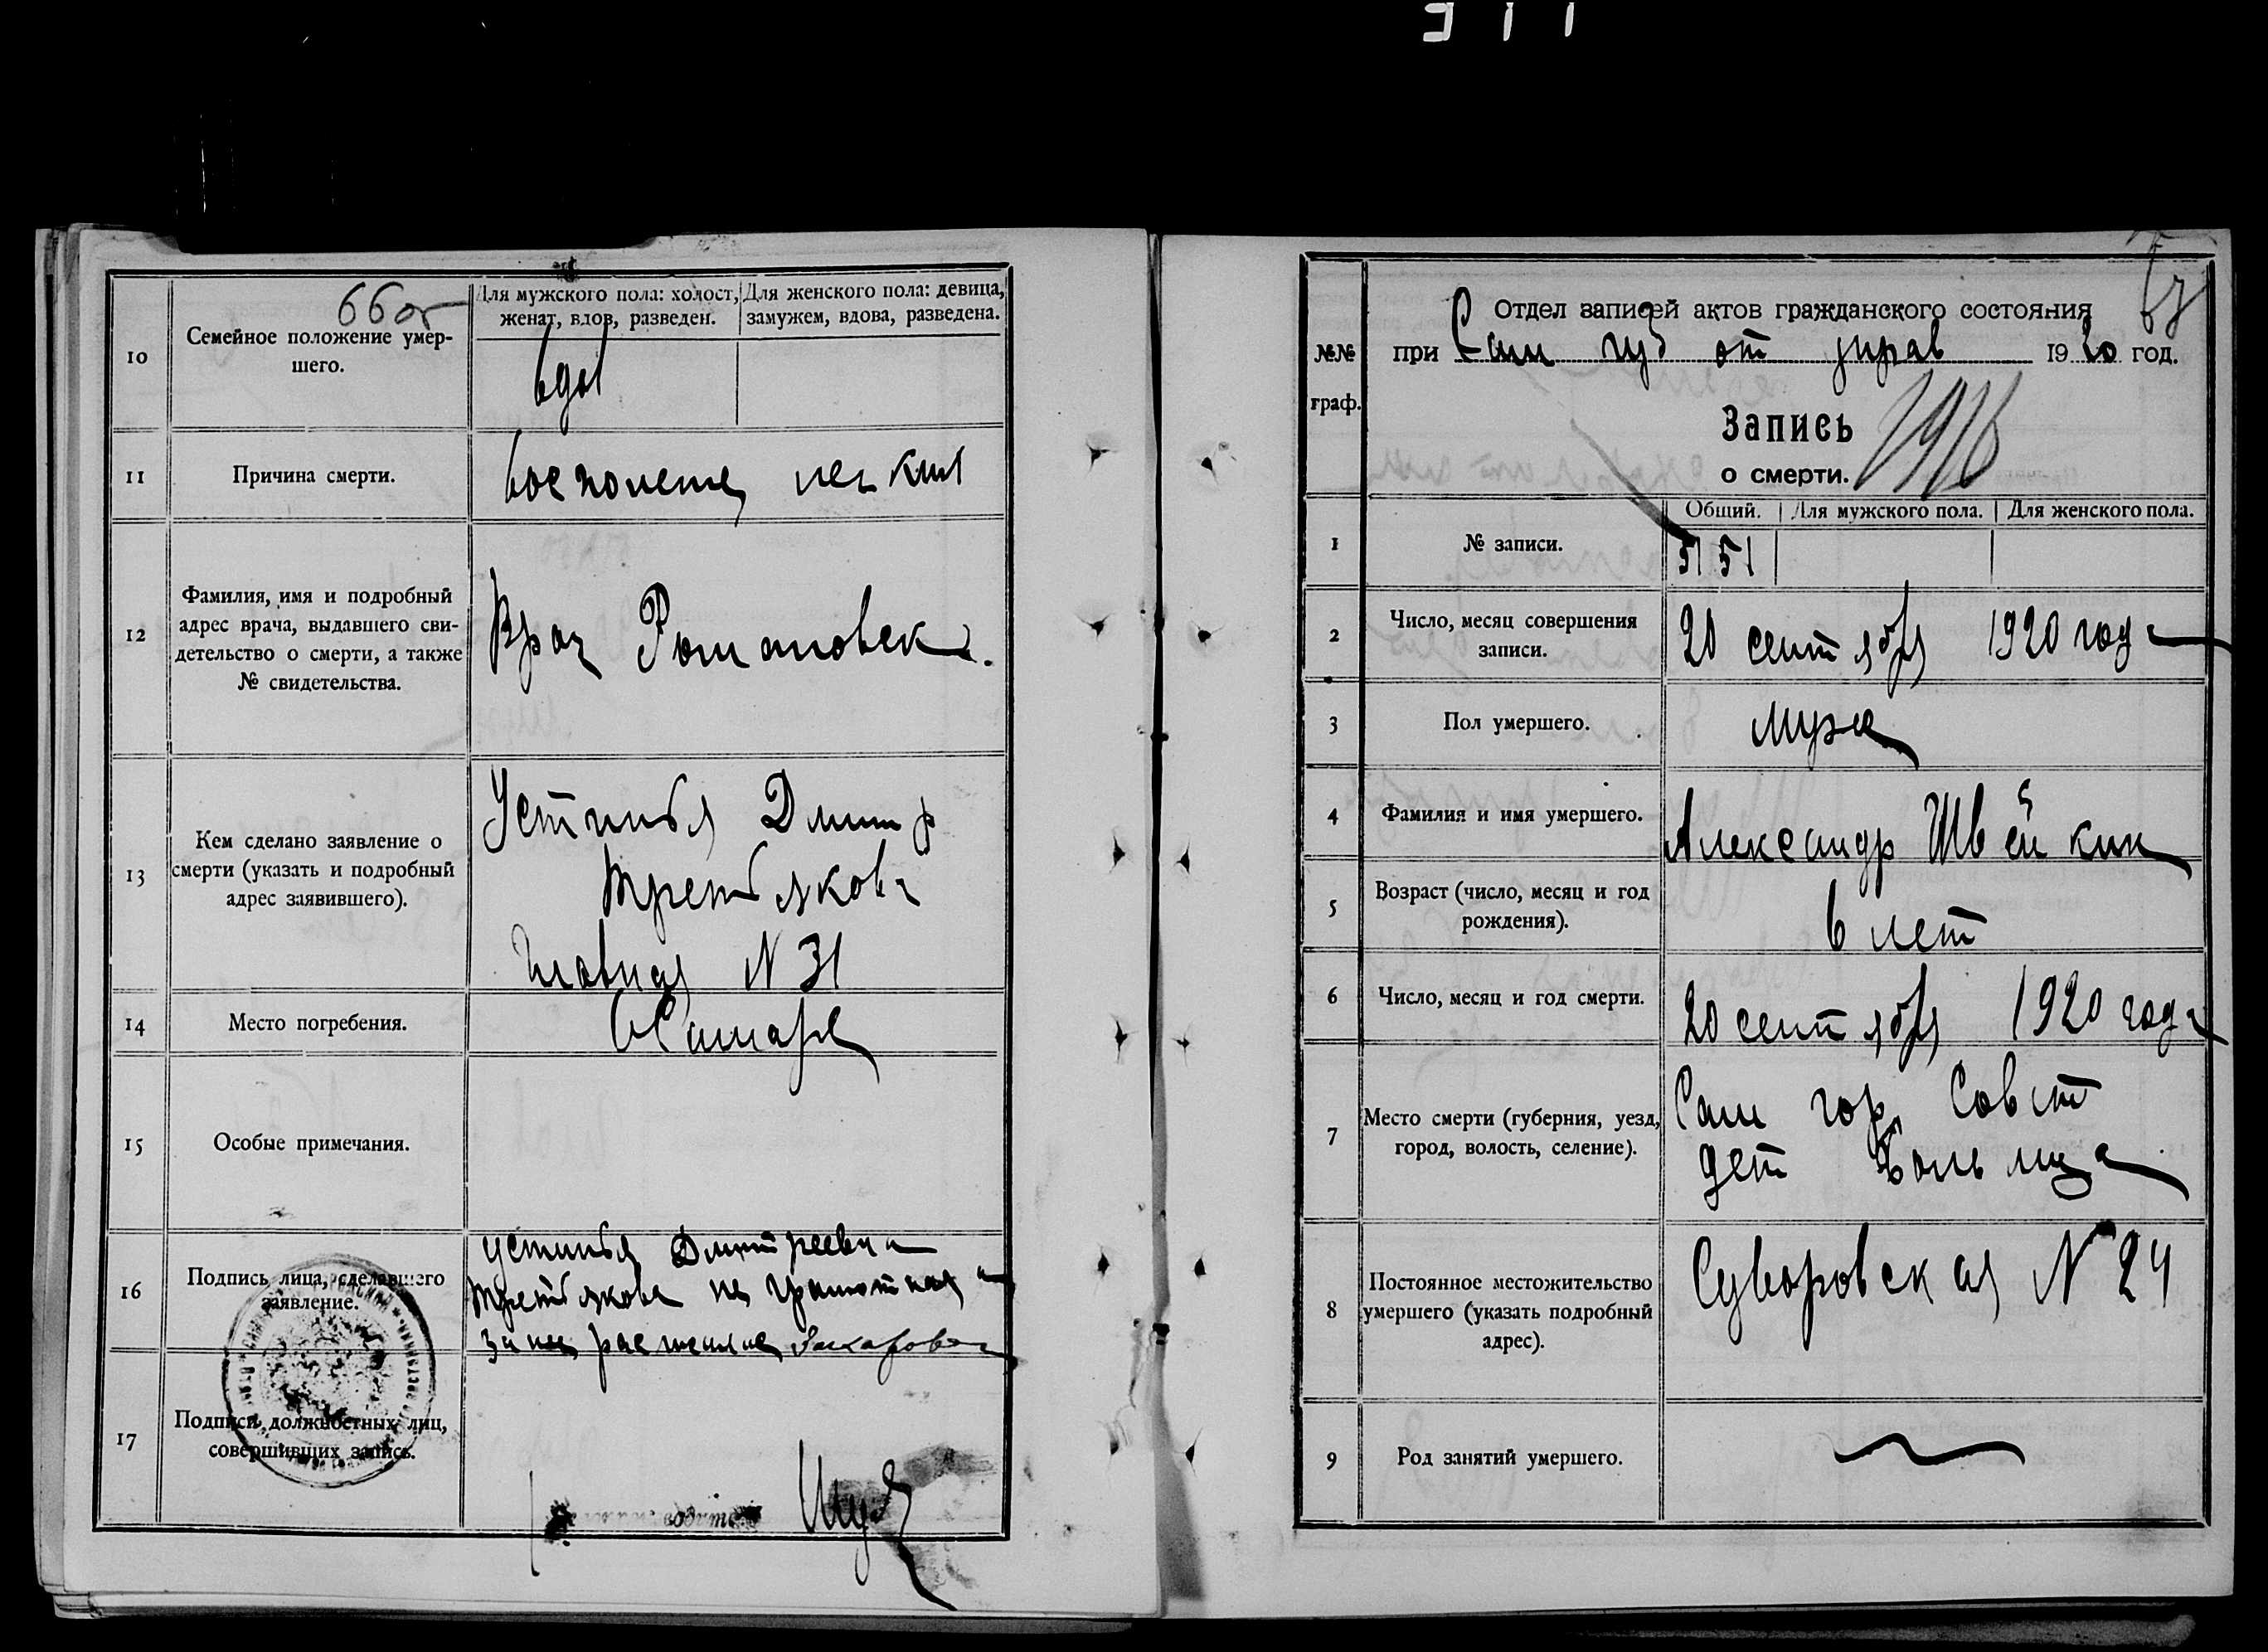 66об
10
Семейное положение умер-
шего.
Для мужского пола: холост,
женат, вдов, разведен.
Для женского пола: девица,
замужем, вдова, разведена.
вдов
11
Причина смерти.
восполение легких
12
Фамилия, имя и подробный
адрес врача, выдавшего сви-
детельство о смерти, а также
№ свидетельства.
Врач Романовск
13
Кем сделано заявление о
смерти (указать и подробный
адрес заявившего).
Устинья Дмитр
Третьякова
Главная N 31
14
Место погребения.
в Самаре
15
Особые примечания.
16
Подпись лица, сделавшего
заявление.
Устинья Дмитреевна
Третьякова не грамотная а
за нее
17
Подписи должностных лиц,
совершивших запись.
№№
граф.
Отдел записей актов гражданского состояния
67
при Сам губ от управ 1920 год.
Запись
о смерти.
Общий. Для мужского пола. Для женского пола.
1
№ записи.
5151
2
Число, месяц совершения
записи.
20 сентября 1920 года
3
Пол умершего.
муже
4
Фамилия и имя умершего.
Александр Швейкин
5
Возраст (число, месяц и год
рождения).
6 лет
6
Число, месяц и год смерти.
20 сентября 1920 года
7
Место смерти (губерния, уезд,
город, волость, селение).
Сам гор Совет
дет больница
8
Постоянное местожительство
умершего (указать подробный
адрес).
Суворовская N 24
9
Род занятий умершего.